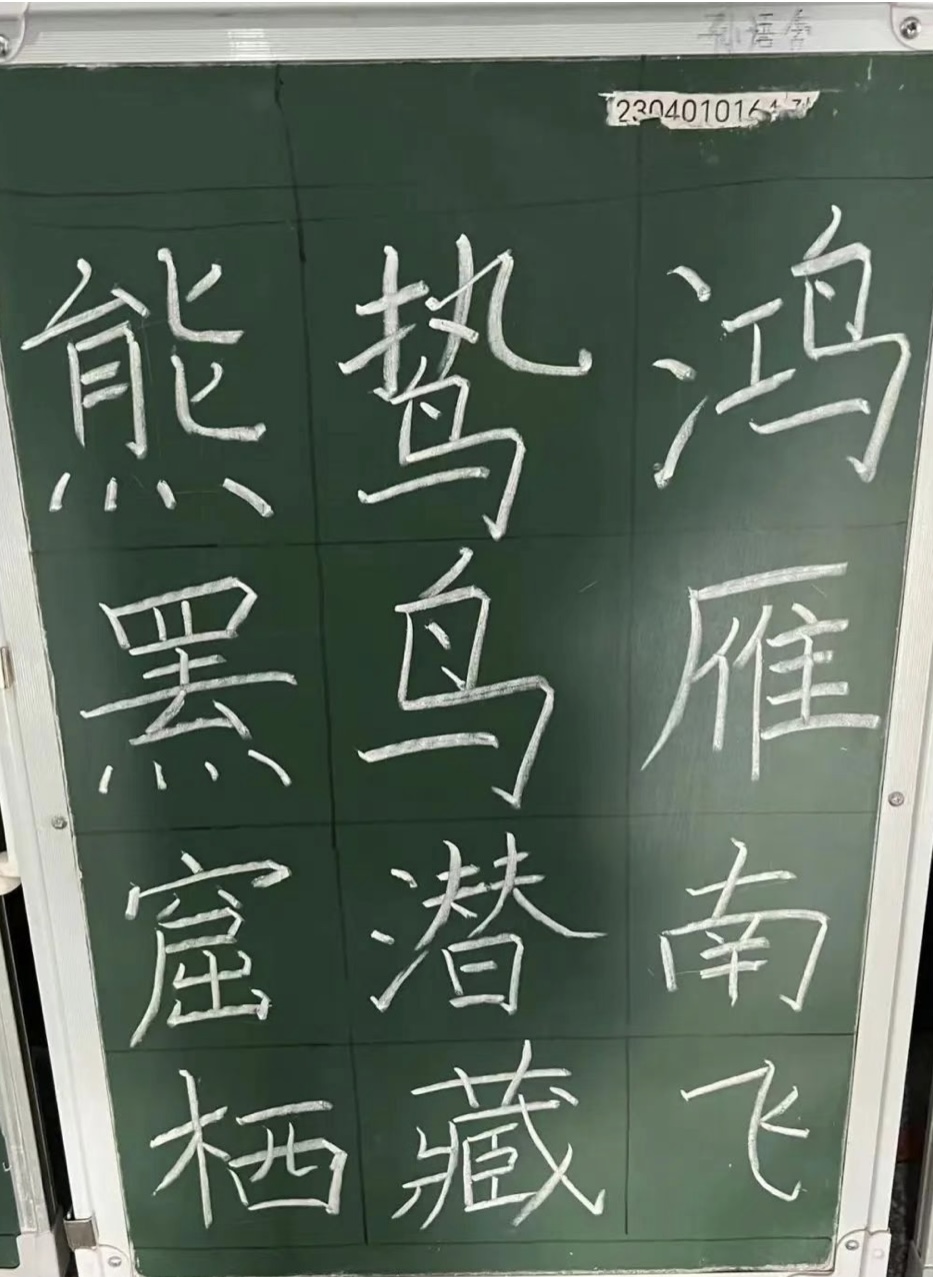 鸿雁南飞
鸷鸟潜藏
熊罴窟栖